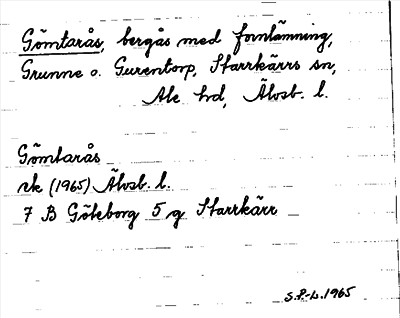 Gömtarås, bergås med fornlämning,
Grunne o. Gurentorp, Starrkärrs sn,
Ale hd, Älvsb. l.
Gömtarås
rk (1965) Älvsb. l.
7 B Göteborg 5 g Starrkärr
S.P.-L. 1965